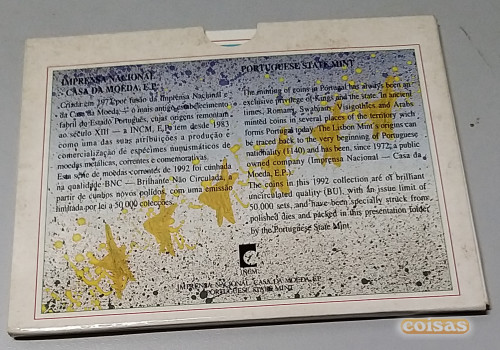 IMPRENSA NACIONAL
CASA DA MOEDA, E.P.
Criada em 1972 por fusão da Imprensa Nacional e
da Casa da Moeda — o mais antigo estabelecimento
fabril do Estado Português, cujas origens remontam
ao século XIII — a INCM, E.P. tem desde 1983
como uma das suas atribuições a produção e
comercialização de espécies numismáticos de
moedas metálicas, correntes e comemorativas.
Esta série de moedas correntes de 1992 foi cunhada
na qualidade BNC — Brilhante Não Circulada, a
partir de cunhos novos polidos, com uma emissão
limitada por lei a 50.000 colecções.
PORTUGUESE STATE MINT
The minting of coins in Portugal has always been an
exclusive privilege of Kings and the state. In ancient
times, Romans, Swabians, Visigothics and Arabs
minted coins in several places of the territory wich
forms Portugal today. The Lisbon Mint's origins can
be traced back to the very beginning of Portuguese
nationality (1140) and has been, since 1972, a public
owned company (Imprensa Nacional — Casa da
Moeda, E.P.).
The coins in this 1992 collection are of brilliant
uncirculated quality (BU), with an issue limit of
50,000 sets, and have been specially struck from
polished dies and packed in this presentation folder
by the Portuguese State Mint.
INCM
IMPRENSA NACIONAL-CASA DA MOEDA, E.P.
PORTUGUESE STATE MINT
coisas